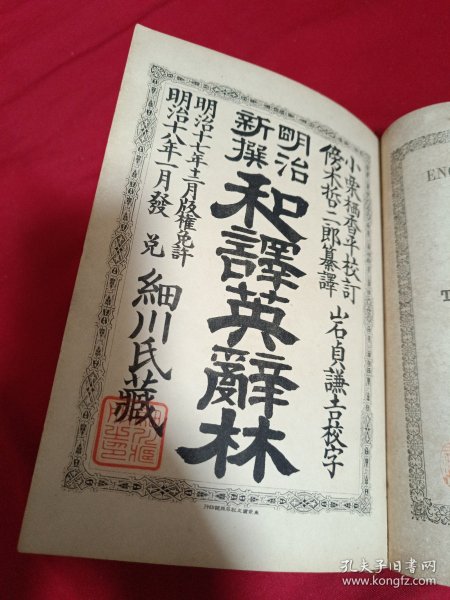 小栗栖香平校訂
傍木哲二郎纂譯
岩貞謙吉校字
明治
新撰
和譯英辭林
明治十七年十二月版權免許
明治十八年一月發兌
細川氏藏
孔夫子旧书网
www.kongfz.com